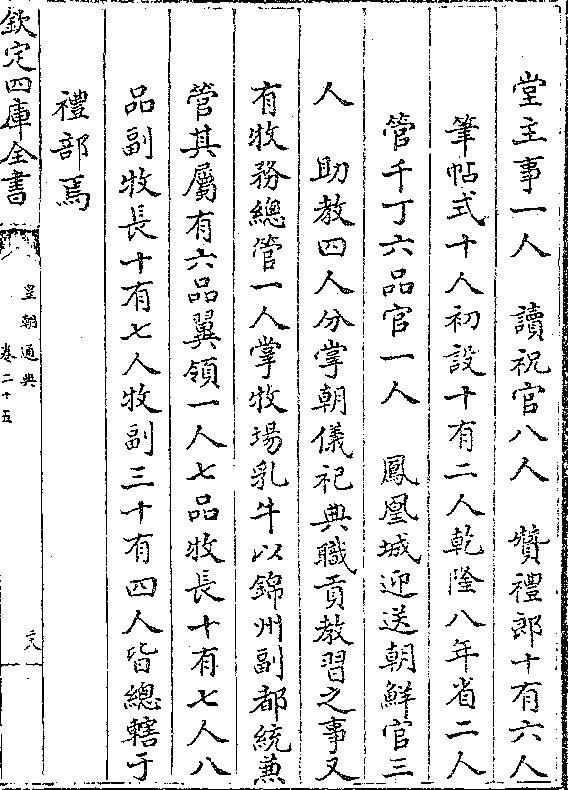 堂主事一人　讀祝官八人　贊禮郎十有六人
筆帖式十人初設十有二人乾隆八年省二人
管千丁六品官一人　鳳凰城迎送朝鮮官三
人　助教四人分掌朝儀祀典職貢教習之事又
有牧務總管一人掌牧場乳牛以錦州副都統兼
管其屬有六品翼領一人七品牧長十有七人八
品副牧長十有七人牧副三十有四人皆總轄于
禮部焉
欽定四庫全書
皇朝通典
卷二十五
二十八